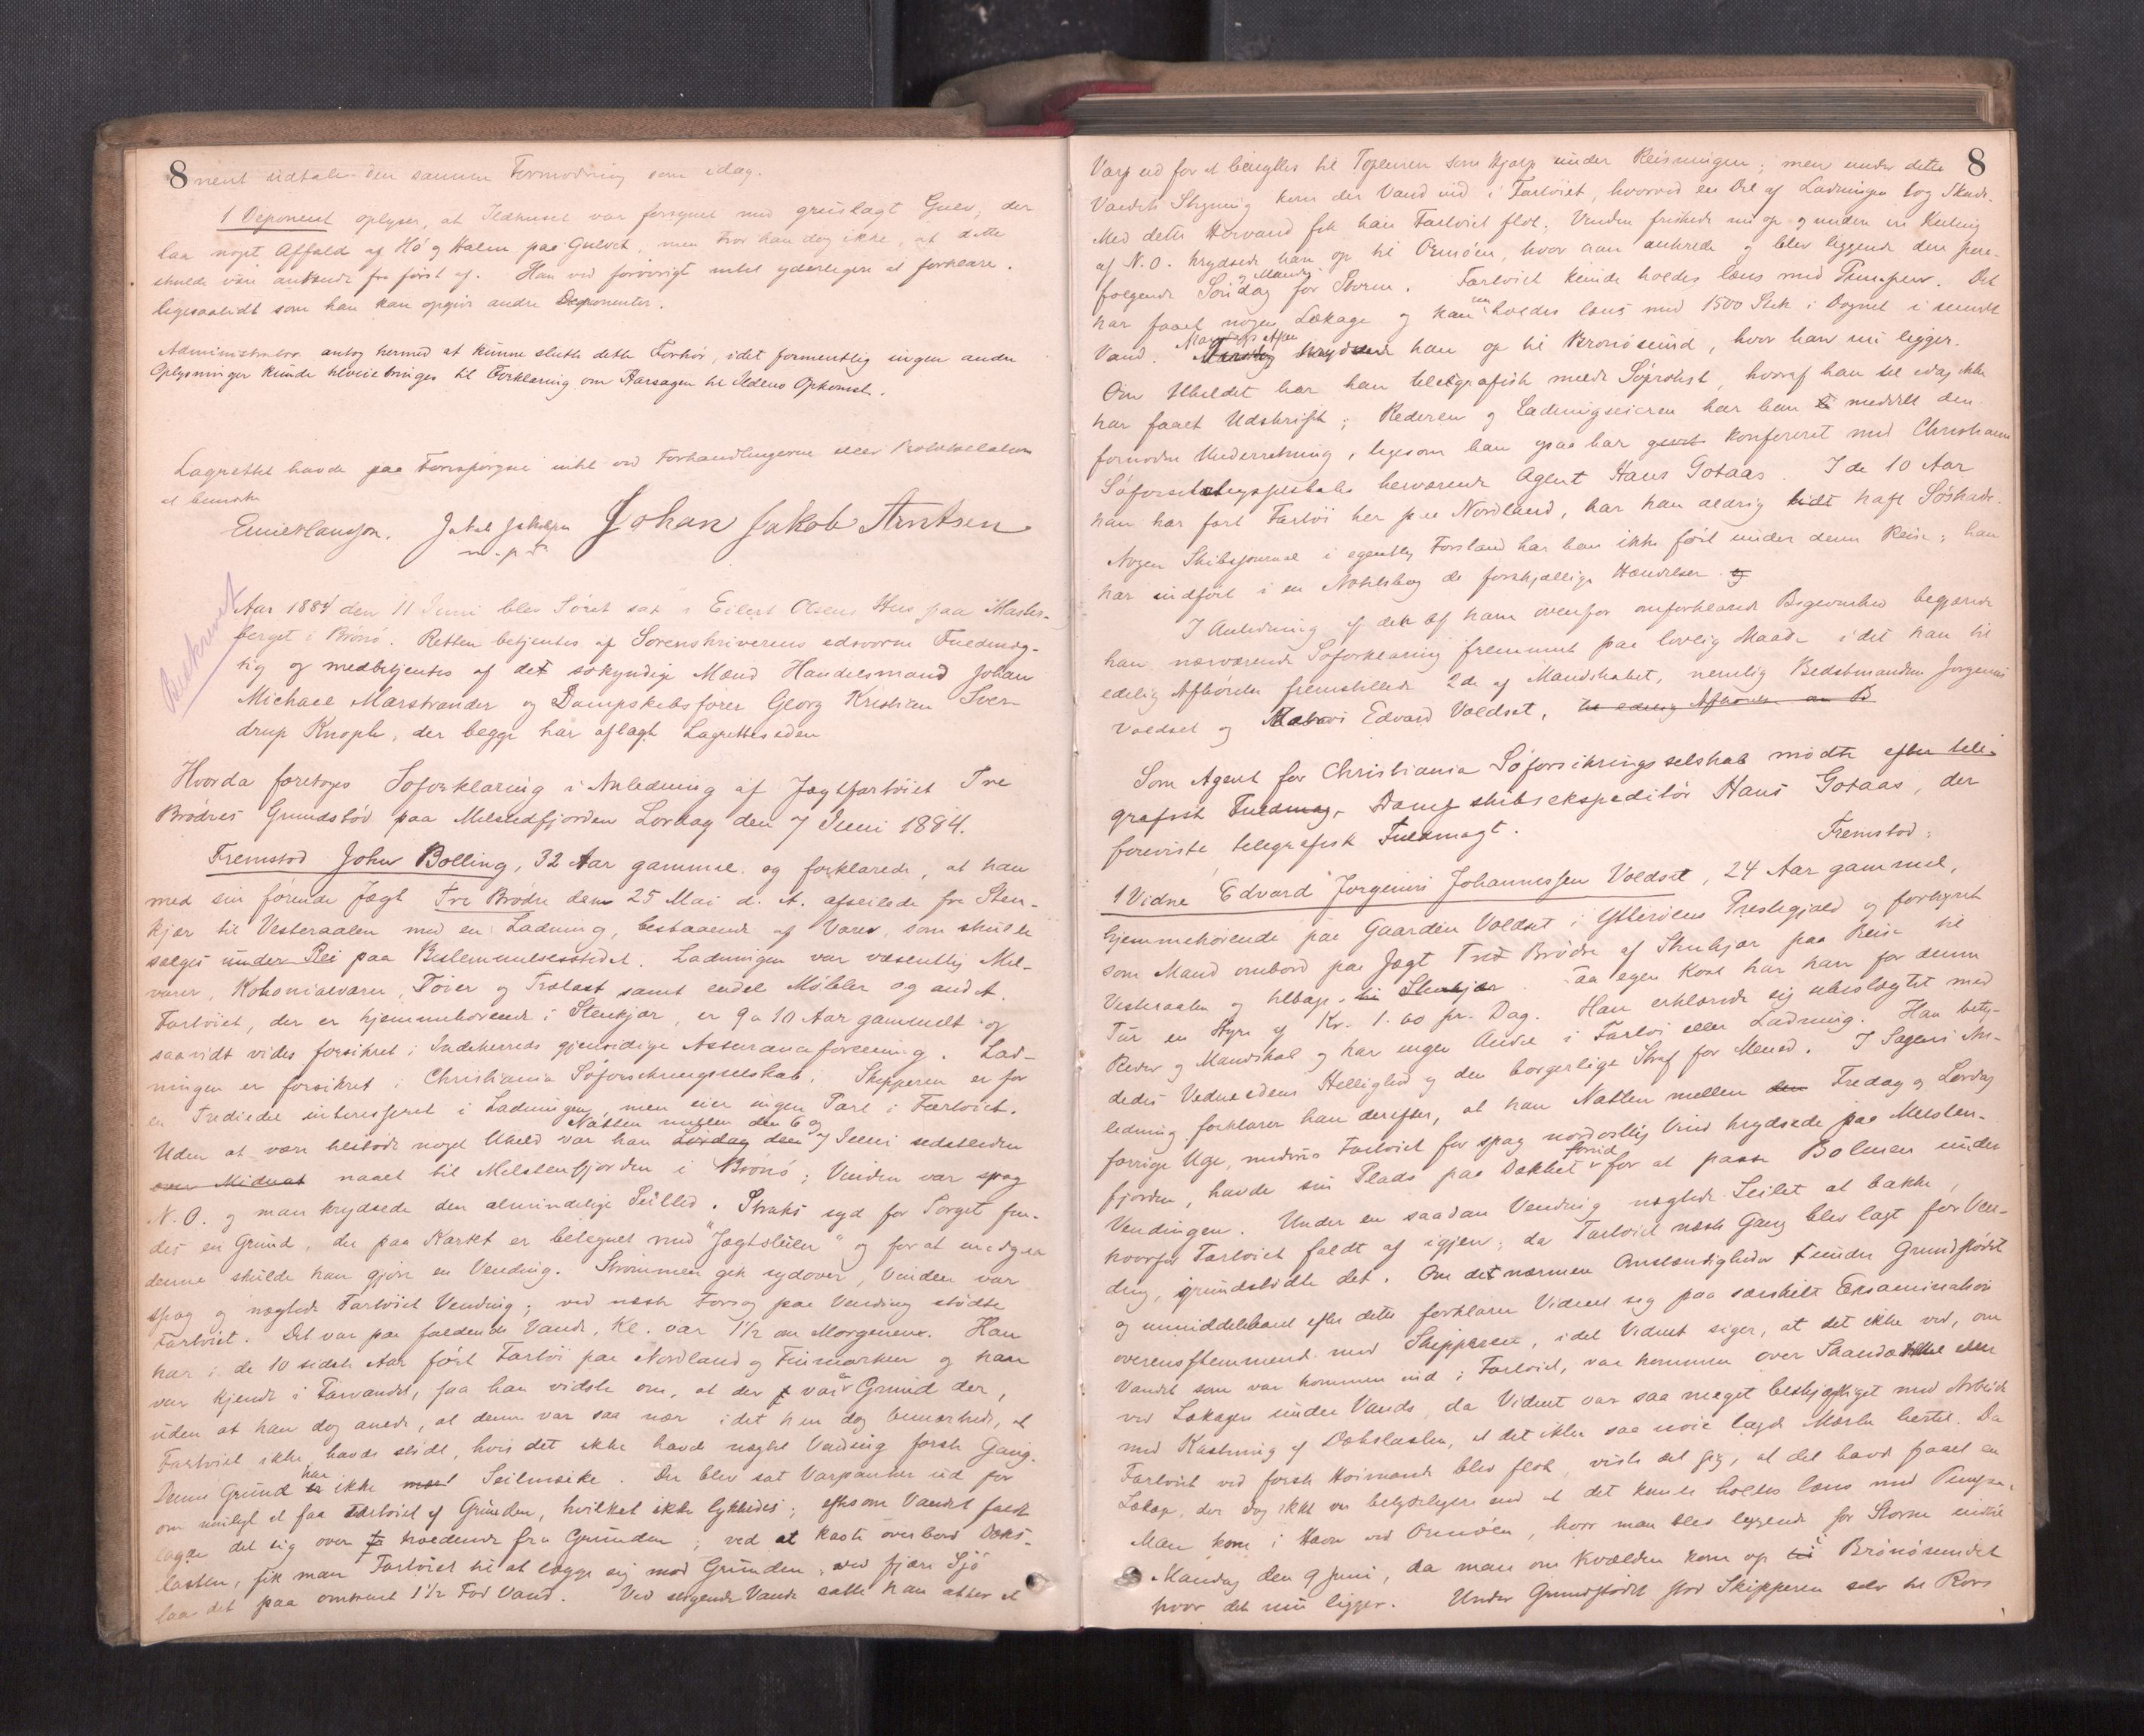 8
nent udtale den samme Formodning som idag.
1 Deponent oplyser, at Ildhuset var forsynet med gruslagt Gulv; der
laa noget Affald af Hö og Halm paa Gulvet, men tror han dog ikke, at dette
skulde være antændt fra först af. Han ved forövrigt intet yderligere at forklare.
ligesaalidt som han kan opgive andre Deponenter.
Administrator antog hermed at kunne slutte dette Forhör, idet formentlig ingen andre
Oplysninger kunde tilveiebringes til Forklaring om Aarsagen til Ildens Opkomst.
Lagrettet havde paa Forespörgsel intet ved Forhandlingerne eller Protokollationen
at bemærke
Jakob Jakobsen Johan Jakob Arntsen
m. p. P.
Beskrevet
Aar 1884 den 11 Juni blev Söret sat i Eilert Olsens Hus paa
berget i Brönö. Retten betjentes af Sorenskriverens edsvorne Fuldmæg-
tig og medbetjentes af det sökyndige Mænd Handelsmand Johan
Michael Marstrander og Dampskibsförer Georg Kristian Sver-
drup Knoph, der begge har aflagt Lagrettesëden
Hvorda foretoges Söforklaring i Anledning af Jagtfartöiet Tre
Brödres Grundstöd paa Melstenfjorden Lördag den 7 Juni 1884.
Fremstod John Bolling, 32 Aar gammel og forklarede, at han
med sin förende Jagt Tre Brödre den 25 Mai d. A. afseilede fra Sten-
kjær til Vesteraalen med en Ladning, bestaaende af Varer, som skulde
sælges under Rei paa Bestemmelsesstedet. Ladningen var væsentlig Mel-
varer, Kolonialvarer, Töier og Trælast samt endel Möbler og andet.
Fartöiet, der er hjemmehörende i Stenkjær, er 9 a 10 Aar gammelt og
saavidt vides forsikret i Indeherreds gjensidige Assuranceforening. Lad-
ningen er forsikret i Christiania Söforsikringsselskab. Skipperen er for
en Trediedel interesseret i Ladningen, men eier ingen Part i Fartöiet.
Natten mellem den 6 og
Uden at være tilstödt noget Uheld var han Lördag den 7 Juni sidstleden
over Midnat naaet til Melstenfjorden i Brönö; Vinden var spag
N.O. og man krydsede den almindelige Seilled. Straks syd for Torget fin-
des en Grund, der paa Kartet er betegnet med "Jægtskilen" og for at undgaa
denne skulde han gjöre en Vending. Strömmen gik sydover, Vinden var
spag og nægtede Fartöiet Vending; ved næste Forsög paa Vending stödte
Fartöiet. Det var paa faldende Vande, Kl. var 1½ om Morgenen. Han
har i de 10 sidste Aar fört Fartöi paa Nordland og Finmarken og han
var kjendt i Farvandet, saa han vidste om, at der var Grund der,
uden at han dog anede, at denne var saa nær idet han dog bemærkede, at
Fartöiet ikke havde stödt, hvis det ikke havde nægtet Vending förste Gang.
Denne Grund er har ikke med Seilmærke. Der blev sat Varpanker ud for
om muligt at faa Fartöiet af Grunden, hvilket ikke lykkedes; eftersom Vandet faldt
lagde det sig over fra Grunden; ved at kaste overbord Dæks-
lasten, fik man Fartöiet til at lægge sig mod Grunden, ved fjære Sjö
laa det paa omtrent 1½ Fod Vand. Ved stigende Vande satte han atter et
8
Varp ud for at benyttes til Toplenen som Hjælp under Reisningen; men under dette
Vandets Stigning kom der Vand ind i Fartöiet, hvorved en Del af Ladningen tog Skade.
Med dette Höivand fik han Fartöiet flot. Vinden friskede nu op og under en Kuling
af N.O. krydsede han op til Ormöen, hvor han ankrede og blev liggende den paa-
og Mandag
fölgende Söndag for Storm. Fartöiet kunde holdes læns med Pumpen. Det
har faaet nogen Lækage og kan holdes læns med 1500 Stök i Dögnet i smult
Mandags Aften
Vand. krydsede han op til Brönösund, hvor han nu ligger.
Om Uheldet har han telegrafisk meldt Söprotest, hvoraf han til idag ikke
har faaet Udskrift; Rederen og Ladningseieren har han meddelt den
fornödne Underretning, ligesom han ogsaa har konfereret med Christiania
Söforsikringsselskabs herværende Agent Hans Gotaas. I de 10 Aar
han har fört Fartöi her paa Nordland, har han aldrig lidt haft Söskade.
Nogen Skibsjournal i egentlig Forstand har han ikke fört under denne Reise; han
har indfört i en Notitsbog de forskjællige Hændelser og
I Anledning af det af ham ovenfor omforklarede Begivenhed begjærede
han nærværende Söforklaring fremmet paa lovlig Maade idet han til
edelig Afhörelse fremstillede 2de af Mandskabet, nemlig Bedstmanden Jorginus
Voldset og Edvard Voldset, til edelig Afhörelse
Som Agent for Christiania Söforsikringsselskab mödte efter tele-
grafisk Fuldmag, Dampskibsekspeditör Hans Gotaas, der
foreviste telegrafisk Fuldmagt.
Fremstod:
1 Vidne Edvard Jorginus Johannessen Voldset, 24 Aar gammel,
hjemmehörende paa Gaarden Voldset i Ytteröens Prestegjæld og forhyret
som Mand ombord paa Jagt Tre Brödre af Stenkjær paa Reise til
Vesteraalen og tilbage til Stenkjær. Paa egen Kost har han for denne
Tur en Hyre af Kr. 1.60 pr. Dag. Han erklærede sig ubeslægtet med
Reder og Mandskab og har ingen Andel i Fartöi eller Ladning. Han bety-
dedes Vedneedens Hellighed og den borgerlige Straf for Mened. I Sagens An-
ledning forklarer han derefter, at han Natten mellem den Fredag og Lördag
forrige Uge, medens Fartöiet for spag nordostlig Vind krydsede paa Melsten-
forud
fjorden, havde sin Plads paa Dækket for at passe Bolinen under
Vendingen. Under en saadan Vending nægtede Seilet at bakke,
hvorfor Fartöiet faldt af igjen; da Fartöiet næste Gang blev lagt for Ven-
ding, grundstödte det. Om det nærmere Omstændigheder under Grundstödet
og umiddelbart efter dette forklarer Vidnet sig paa særskilt Eksamination
overensstemmende med Skipperen, idet Vidnet siger, at det ikke ved, om
Vandet som var kommen ind i Fartöiet, var kommen over eller
ved Lækagen under Vande, da Vidnet var saa meget beskjæftiget med Arbeide
med Kastning af Dækslasten, at det ikke saa nöie lagde Mærke hertil. Da
Fartöiet ved förste Höivande blev flot, viste det sig, at det havde faaet en
Lækage, der dog ikke var betydeligere end at det kunde holdes læns med Pumpen.
Man kom i Havn ved Ormöen, hvor man blev liggende for Storm indtil
Mandag den 9 Juni, da man om Kvælden kom op til Brönösundet
hvor det nu ligger. Under Grundstödet stod Skipperen selv til Rors